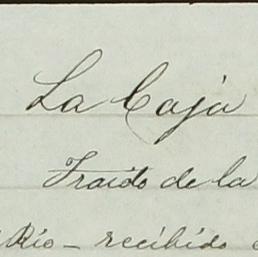 La Caja
Traido de la
Rio - recibido